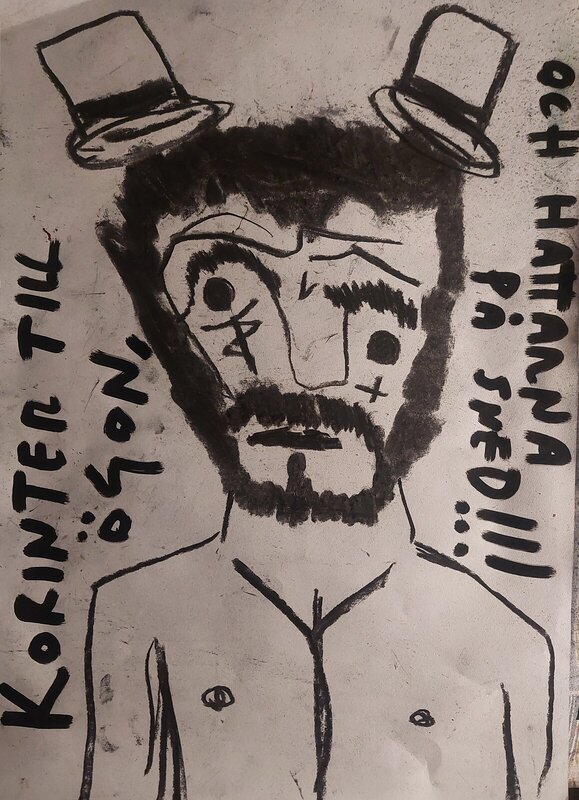 KORINTER TILL
ÖGON,
OCH HATTARNA
PÅ SNED!!!